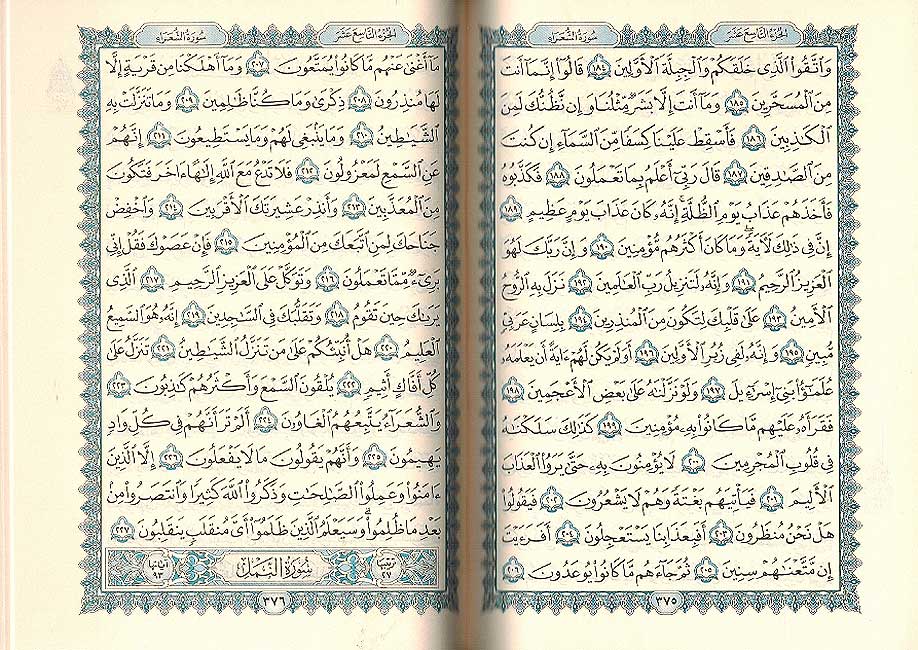 الجزء التاسع عشر
سورة الشعراء
وَاتَّقُوا الَّذِى خَلَقَكُمْ وَالْجِبِلَّةَ الْأَوَّلِينَ ١٨٤ قَالُوا إِنَّمَا أَنتَ
مِنَ الْمُسَحَّرِينَ ١٨٥ وَمَا أَنتَ إِلَّا بَشَرٌ مِّثْلُنَا وَإِن نَّظُنُّكَ لَمِنَ
الْكَٰذِبِينَ ١٨٦ فَأَسْقِطْ عَلَيْنَا كِسَفًا مِّنَ السَّمَآءِ إِن كُنتَ
مِنَ الصَّٰدِقِينَ ١٨٧ قَالَ رَبِّى أَعْلَمُ بِمَا تَعْمَلُونَ ١٨٨ فَكَذَّبُوهُ
فَأَخَذَهُمْ عَذَابُ يَوْمِ الظُّلَّةِ ۚ إِنَّهُۥ كَانَ عَذَابَ يَوْمٍ عَظِيمٍ ١٨٩
إِنَّ فِى ذَٰلِكَ لَأٓيَةً ۖ وَمَا كَانَ أَكْثَرُهُم مُّؤْمِنِينَ ١٩٠ وَإِنَّ رَبَّكَ لَهُوَ
الْعَزِيزُ الرَّحِيمُ ١٩١ وَإِنَّهُۥ لَتَنزِيلُ رَبِّ الْعَٰلَمِينَ ١٩٢ نَزَلَ بِهِ الرُّوحُ
الْأَمِينُ ١٩٣ عَلَىٰ قَلْبِكَ لِتَكُونَ مِنَ الْمُنذِرِينَ ١٩٤ بِلِسَانٍ عَرَبِىٍّ
مُّبِينٍ ١٩٥ وَإِنَّهُۥ لَفِى زُبُرِ الْأَوَّلِينَ ١٩٦ أَوَلَمْ يَكُن لَّهُمْ ءَايَةً أَن يَعْلَمَهُۥ
عُلَمَٰٓؤُا بَنِىٓ إِسْرَٰٓءِيلَ ١٩٧ وَلَوْ نَزَّلْنَٰهُ عَلَىٰ بَعْضِ الْأَعْجَمِينَ ١٩٨
فَقَرَأَهُۥ عَلَيْهِم مَّا كَانُوا بِهِۦ مُؤْمِنِينَ ١٩٩ كَذَٰلِكَ سَلَكْنَٰهُ
فِى قُلُوبِ الْمُجْرِمِينَ ٢٠٠ لَا يُؤْمِنُونَ بِهِۦ حَتَّىٰ يَرَوُا الْعَذَابَ
الْأَلِيمَ ٢٠١ فَيَأْتِيَهُم بَغْتَةً وَهُمْ لَا يَشْعُرُونَ ٢٠٢ فَيَقُولُوا
هَلْ نَحْنُ مُنظَرُونَ ٢٠٣ أَفَبِعَذَابِنَا يَسْتَعْجِلُونَ ٢٠٤ أَفَرَءَيْتَ
إِن مَّتَّعْنَٰهُمْ سِنِينَ ٢٠٥ ثُمَّ جَآءَهُم مَّا كَانُوا يُوعَدُونَ ٢٠٦
٣٧٥
الجزء التاسع عشر
سورة الشعراء
مَآ أَغْنَىٰ عَنْهُم مَّا كَانُوا يُمَتَّعُونَ ٢٠٧ وَمَآ أَهْلَكْنَا مِن قَرْيَةٍ إِلَّا
لَهَا مُنذِرُونَ ٢٠٨ ذِكْرَىٰ وَمَا كُنَّا ظَٰلِمِينَ ٢٠٩ وَمَا تَنَزَّلَتْ بِهِ
الشَّيَٰطِينُ ٢١٠ وَمَا يَنۢبَغِى لَهُمْ وَمَا يَسْتَطِيعُونَ ٢١١ إِنَّهُمْ
عَنِ السَّمْعِ لَمَعْزُولُونَ ٢١٢ فَلَا تَدْعُ مَعَ اللَّهِ إِلَٰهًا ءَاخَرَ فَتَكُونَ
مِنَ الْمُعَذَّبِينَ ٢١٣ وَأَنذِرْ عَشِيرَتَكَ الْأَقْرَبِينَ ٢١٤ وَاخْفِضْ
جَنَاحَكَ لِمَنِ اتَّبَعَكَ مِنَ الْمُؤْمِنِينَ ٢١٥ فَإِنْ عَصَوْكَ فَقُلْ إِنِّى
بَرِىٓءٌ مِّمَّا تَعْمَلُونَ ٢١٦ وَتَوَكَّلْ عَلَى الْعَزِيزِ الرَّحِيمِ ٢١٧ الَّذِى
يَرَىٰكَ حِينَ تَقُومُ ٢١٨ وَتَقَلُّبَكَ فِى السَّٰجِدِينَ ٢١٩ إِنَّهُۥ هُوَ السَّمِيعُ
الْعَلِيمُ ٢٢٠ هَلْ أُنَبِّئُكُمْ عَلَىٰ مَن تَنَزَّلُ الشَّيَٰطِينُ ٢٢١ تَنَزَّلُ عَلَىٰ
كُلِّ أَفَّاكٍ أَثِيمٍ ٢٢٢ يُلْقُونَ السَّمْعَ وَأَكْثَرُهُمْ كَٰذِبُونَ ٢٢٣
وَالشُّعَرَآءُ يَتَّبِعُهُمُ الْغَاوُۥنَ ٢٢٤ أَلَمْ تَرَ أَنَّهُمْ فِى كُلِّ وَادٍ
يَهِيمُونَ ٢٢٥ وَأَنَّهُمْ يَقُولُونَ مَا لَا يَفْعَلُونَ ٢٢٦ إِلَّا الَّذِينَ
ءَامَنُوا وَعَمِلُوا الصَّٰلِحَٰتِ وَذَكَرُوا اللَّهَ كَثِيرًا وَانتَصَرُوا مِنۢ
بَعْدِ مَا ظُلِمُوا ۗ وَسَيَعْلَمُ الَّذِينَ ظَلَمُوٓا أَىَّ مُنقَلَبٍ يَنقَلِبُونَ ٢٢٧
ترتيبها ٢٧
سورة النمل
آياتها ٩٣
٣٧٦